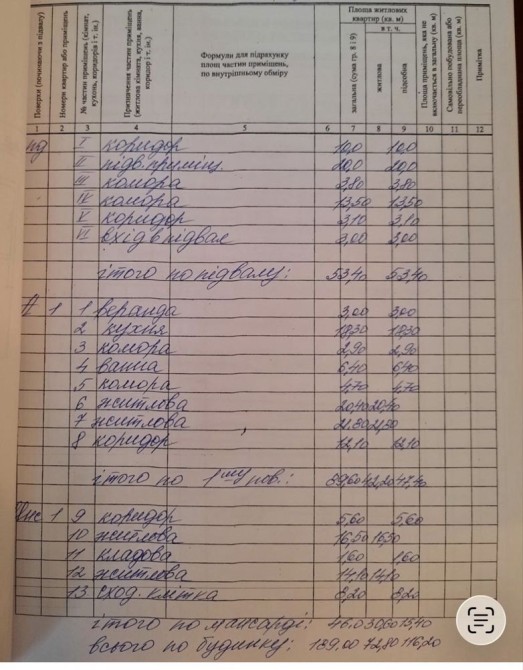 Поверхи (починаючи з підвалу)
Номери квартир або приміщень
№ частин приміщень (кімнат, кухонь, коридорів і т. ін.)
Призначення частин приміщень (житлова кімната, кухня, ванна, коридор і т. ін.)
Формули для підрахунку площ частин приміщень, по внутрішньому обміру
Площа житлових квартир (кв. м)
загальна (сума гр. 8 і 9)
в т. ч.
житлова
підсобна
Площа приміщень, яка не включається в загальну (кв. м)
Самовільно побудована або переобладнана площа (кв. м)
Примітка
1 2 3 4 5 6 7 8 9 10 11 12
пд I коридор 10,0 10,0
II підв. приміщ. 20,0 20,0
III комора 3,80 3,80
IV комора 13,50 13,50
V коридор 3,10 3,10
VI вхід в підвал 3,00 3,00
ітого по підвалу: 53,40 53,40
1 1 веранда 3,00 3,00
2 кухня 18,30 18,30
3 комора 2,90 2,90
4 ванна 6,40 6,40
5 комора 4,70 4,70
6 житлова 20,40 20,40
7 житлова 21,80 21,80
8 коридор 12,10 12,10
ітого по 1 шу пов.: 89,60 42,20 47,40
1 9 коридор 5,60 5,60
10 житлова 16,50 16,50
11 кладова 1,60 1,60
12 житлова 14,10 14,10
13 сход. клітка 8,20 8,20
ітого по мансарді: 46.0 30,60 15,40
всього по будинку: 189.00 72,80 116,20